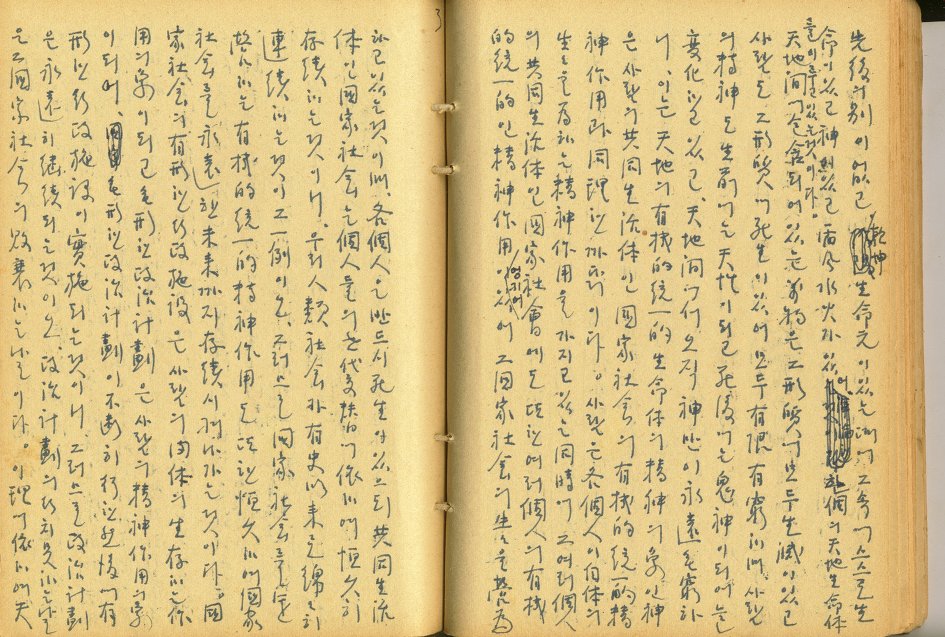 先後의 別이 없고 乾坤 生命元이 있는데 그 속에 스스로 生
命이 있고 神이 있고 雨風水火가 있어 個의 天地生命体
를 이루고 있는 것이다.
天地間에 包含되어 있는 萬物은 그 形質에 모두 生滅이 있고
사람도 그 形質에 死生이 있어 모두 有限有窮하며 사람
의 精神도 生前에는 天性이 되고 死後에는 鬼神이 되어 늘
變化하고 있고, 天地間에 오직 神만이 永遠無窮하
니, 이는 天地의 有機的統一的生命体의 精神의 象인 神
은 사람의 共同生活体인 國家社會의 有機的統一的精
神作用과 同理한 까닭이다. 사람은 各個人이 自体의
生을 爲하는 精神作用을 가지고 있는 同時에 그 여러 個人
의 共同生活体인 國家社會에도 또한 여러 個人의 有機
的統一的인 精神作用이 있어 그 國家社會의 生을 營爲
3
하고 있는 것이며, 各個人은 반드시 死生이 있으되 共同生活
体인 國家社會는 個人들의 世代交替에 依하여 恒久히
存續하는 것이니, 우리 人類社會가 有史以來로 綿綿히
連續하는 것이 그 一例이오. 그러므로 國家社會를 運
營하는 有機的統一的精神作用도 또한 恒久하여 國家
社會를 永遠한 未來까지 存續시켜 나가는 것이다. 國
家社會의 有形한 行政施設은 사람의 肉体의 生存하는 作
用의 象이 되고 無形한 政治計劃은 사람의 精神作用의 象
이 되며, 無形한 政治計劃이 不斷히 行한 然後에 有
形한 行政施設이 實施되는 것이니, 그러므로 政治計劃
은 永遠히 繼續되는 것이오, 政治計劃의
그 國家社會의 敗喪하는 날이다. 이 理에 依하여 天